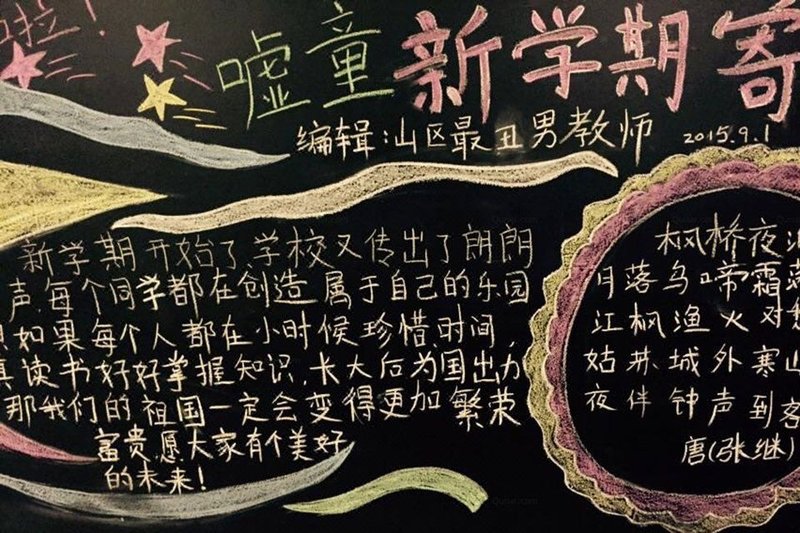 啦！
嘘童 新学期寄
编辑：山区最丑男教师 2015.9.1
新学期开始了，学校又传出了朗朗
声，每个同学都在创造属于自己的乐园
如果每个人都在小时候珍惜时间，
真读书好好掌握知识，长大后为国出力
那我们的祖国一定会变得更加繁荣
富贵，愿大家有个美好
的未来！
枫桥夜泊
月落乌啼霜
江枫渔火对愁
姑苏城外寒山
夜伴钟声到客
唐（张继）